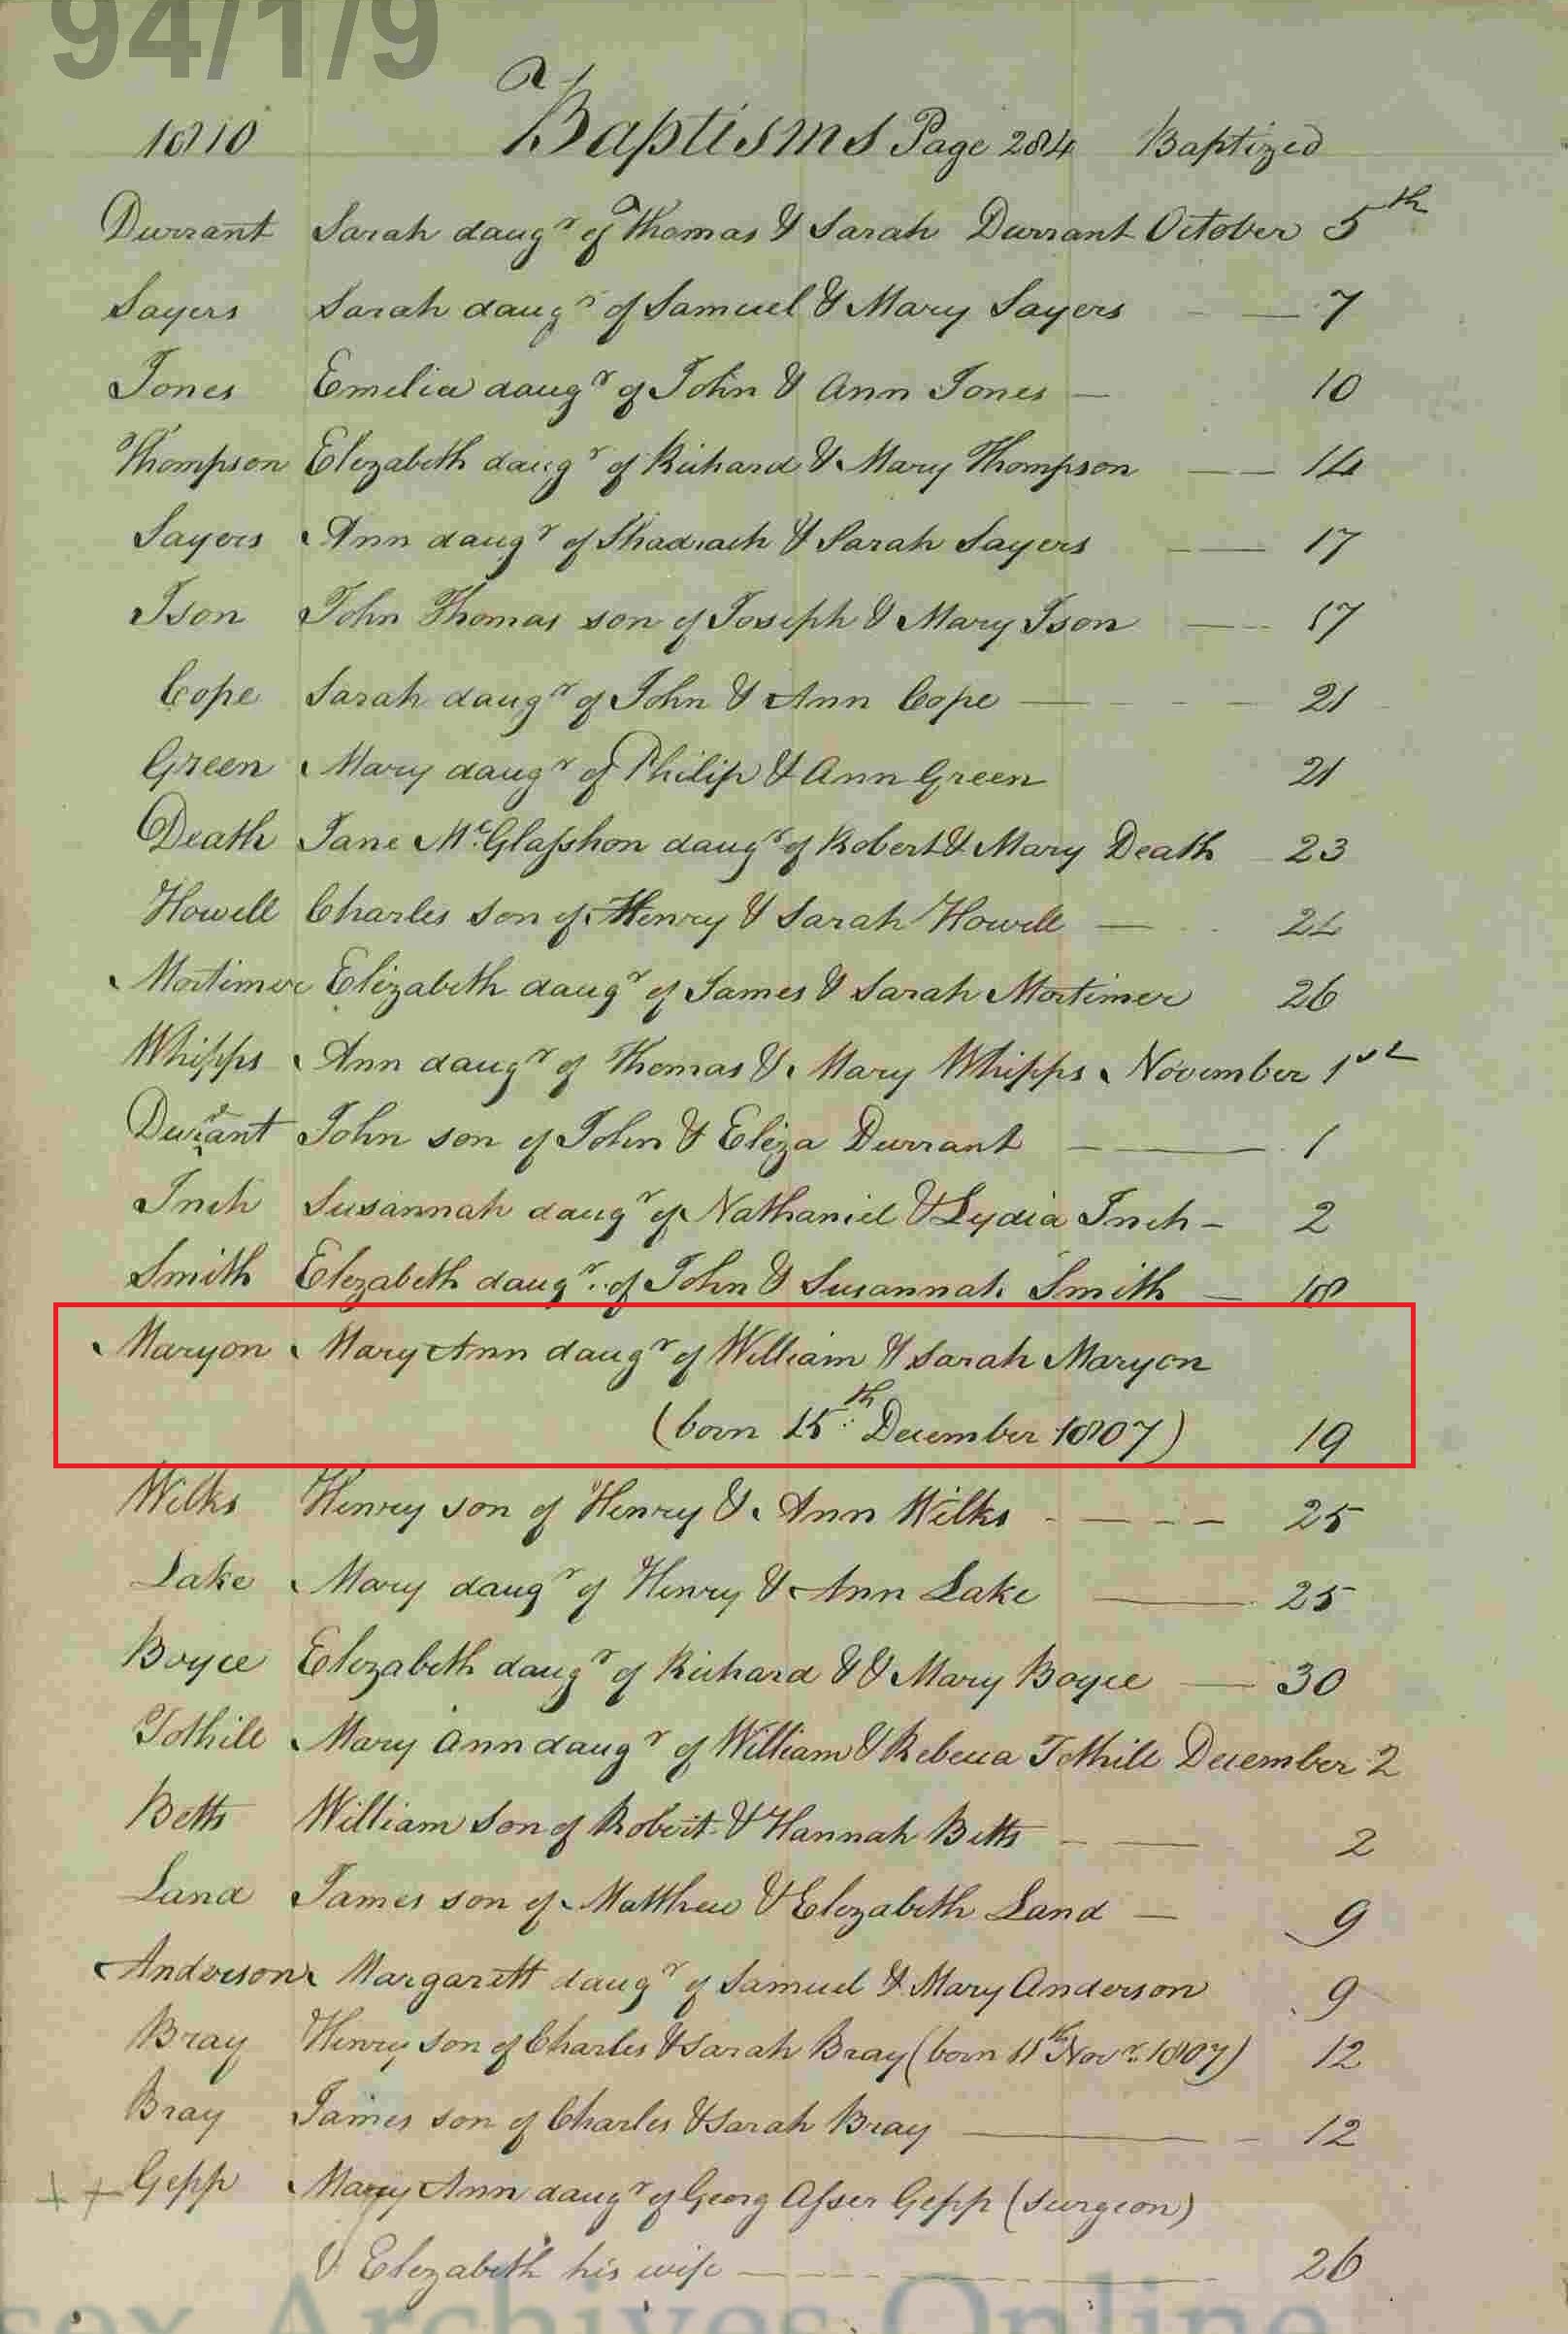 94/1/9
1810 Baptisms Page 284 Baptized
Durrant Sarah daugr of Thomas & Sarah Durrant October 5th
Sayers Sarah daugr of Samuel & Mary Sayers 7
Jones Emelia daugr of John & Ann Jones 10
Thompson Elizabeth daugr of Richard & Mary Thompson 14
Sayers Ann daugr of Shadrach & Sarah Sayers 17
Ison John Thomas son of Joseph & Mary Ison 17
Cope Sarah daugr of John & Ann Cope 21
Green Mary daugr of Philip & Ann Green 21
Death Jane McGlasshon daugr of Robert & Mary Death 23
Howell Charles son of Henry & Sarah Howell
Mortimer Elizabeth daugr of James & Sarah Mortimer 26
Whipps Ann daugr of Thomas & Mary Whipps November 1st
Durrant John son of John & Eliza Durrant 1
Inch Susannah daugr of Nathaniel & Lydia Inch 2
Smith Elizabeth daugr of John & Susannah Smith 18
Maryon Mary Ann daugr of William & Sarah Maryon
(born 15th December 1807) 19
Wilks Henry son of Henry & Ann Wilks 25
Lake Mary daugr of Henry & Ann Lake 25
Boyce Elizabeth daugr of Richard & & Mary Boyce 30
Tothill Mary Ann daugr of William & Rebecca Tothill December 2
Betts William son of Robert & Hannah Betts 2
Land James son of Matthew & Elizabeth Land 9
Anderson Margarett daugr of Samuel & Mary Anderson 9
Bray Henry son of Charles & Sarah Bray (born 11th Novr 1807) 12
Bray James son of Charles & Sarah Bray 12
Gepp Mary Ann daugr of Georg Asser Gepp (surgeon)
& Elizabeth his wife 26
sex Archives Online